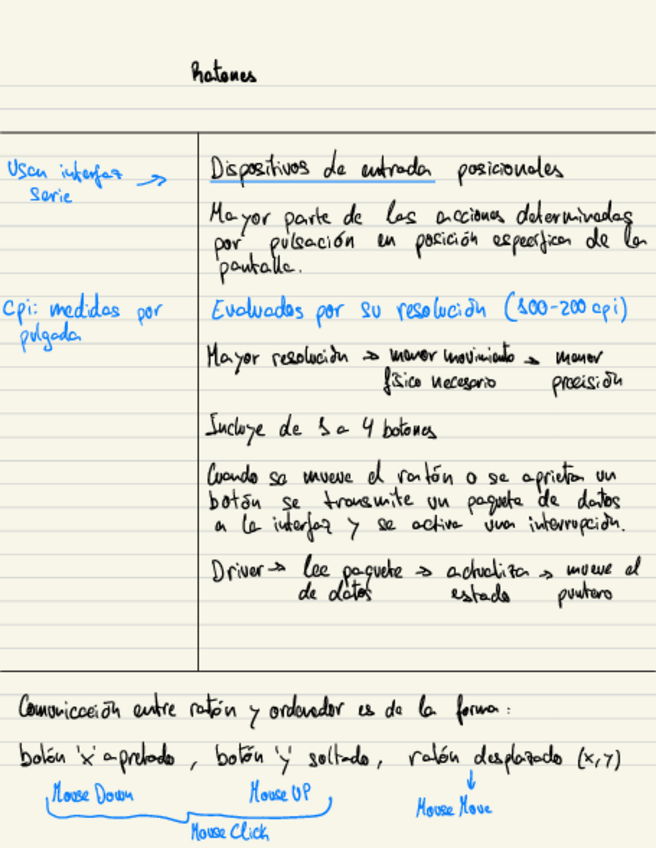 Ratones
Usan interfaz →
serie
Dispositivos de entrada posicionales
Mayor parte de las acciones determinadas
por pulsación en posición específica de la
pantalla.
Cpi: medidas por
pulgada
Evaluados por su resolución (100-200 cpi)
Mayor resolución → menor movimiento → menor
físico necesario precisión
Incluye de 1 a 4 botones
Cuando se mueve el ratón o se aprieta un
botón se transmite un paquete de datos
a la interfaz y se activa una interrupción.
Driver → lee paquete → actualiza → mueve el
de datos estado puntero
Comunicación entre ratón y ordenador es de la forma:
botón 'x' apretado, botón 'y' soltado, ratón desplazado (x,y)
Mouse Down Mouse UP ↓
Mouse Move
Mouse Click